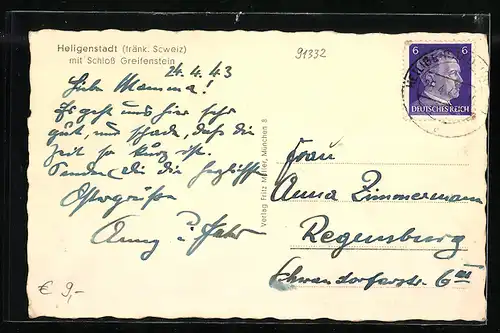 Heligenstadt (fränk. Scweiz)
mit Schloß Greifenstein
91332
24.4.43
Liebe Mamma!
Es geht uns hier sehr
gut, nur schade, daß die
Zeit so kurz ist.
Senden Dir die herzlichsten
Ostergrüßen
Anny u.
€ 9,-
Verlag Fritz Müller, München 8
6 6
DEUTSCHES REICH
Frau
Anna Zimmermann
Regensburg
Schwandorferstr. 6